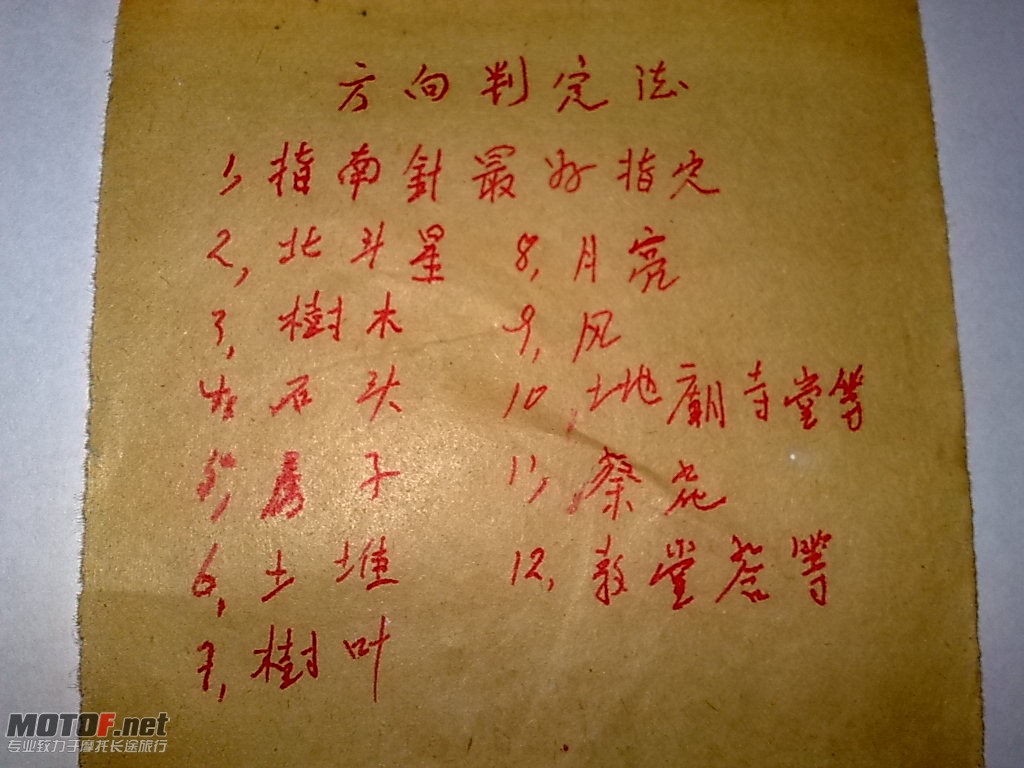 方向判定法
1, 指南針最好指定
2, 北斗星
3, 樹木
4, 石头
5, 房子
6, 土堆
7, 樹叶
8, 月亮
9, 风
10, 土地廟寺堂等
11, 葵花
12, 教堂塔等
MOTOF.net
专业致力于摩托长途旅行